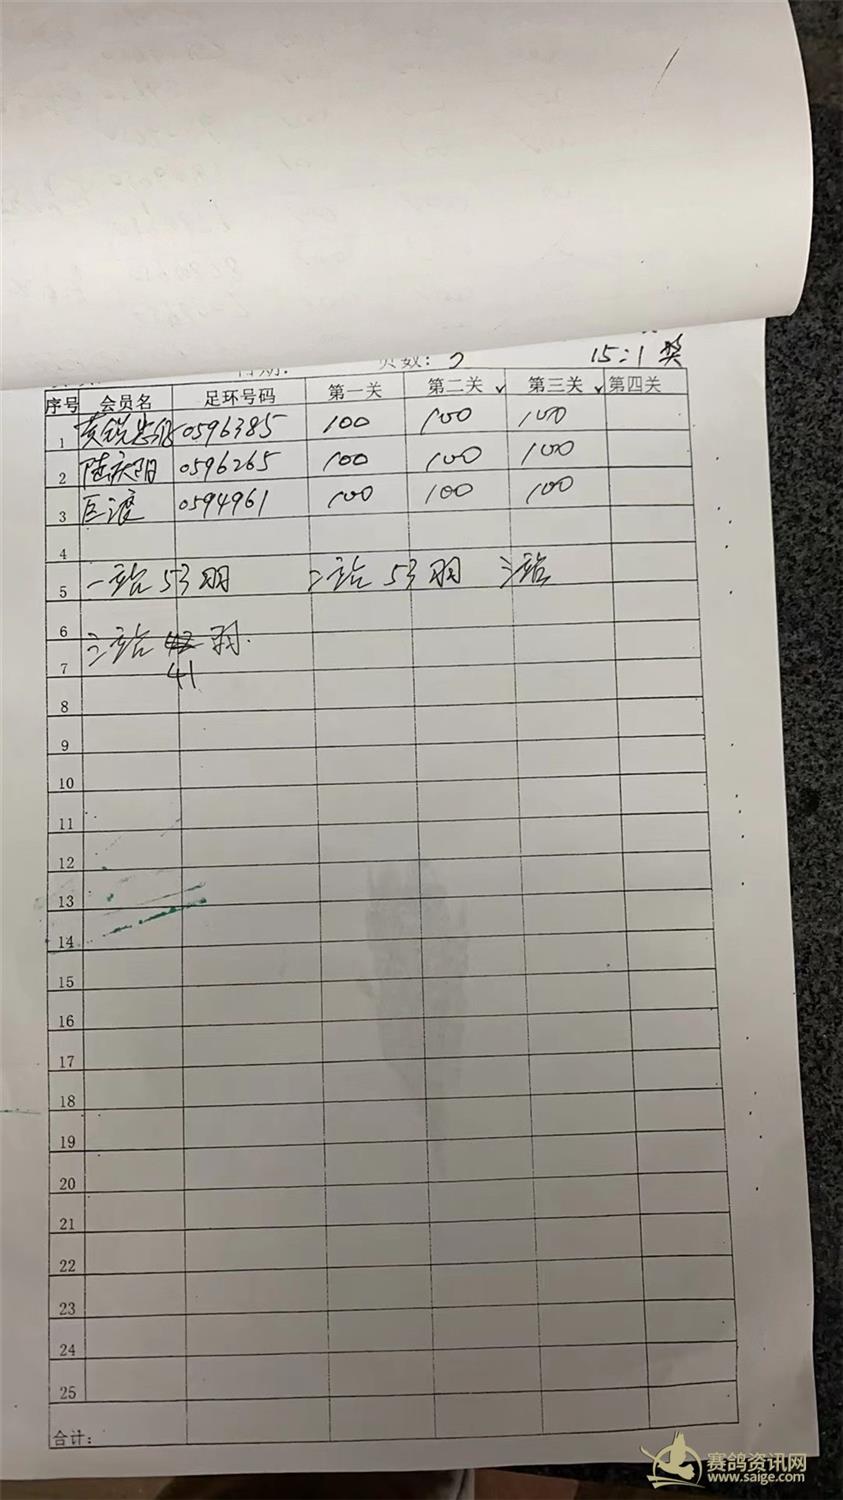 页数: 15:1 奖
序号 会员名 足环号码 第一关 第二关 ✓ 第三关 ✓ 第四关
1 0596385 100 100 100
2 陆庆阳 0596265 100 100 100
3 巨渡 0594961 100 100 100
4
5 一站 53羽 二站 53羽 三站
6
7 三站 羽.
41
8
9
10
11
12
13
14
15
16
17
18
19
20
21
22
23
24
25
合计:
赛鸽资讯网
www.saige.com